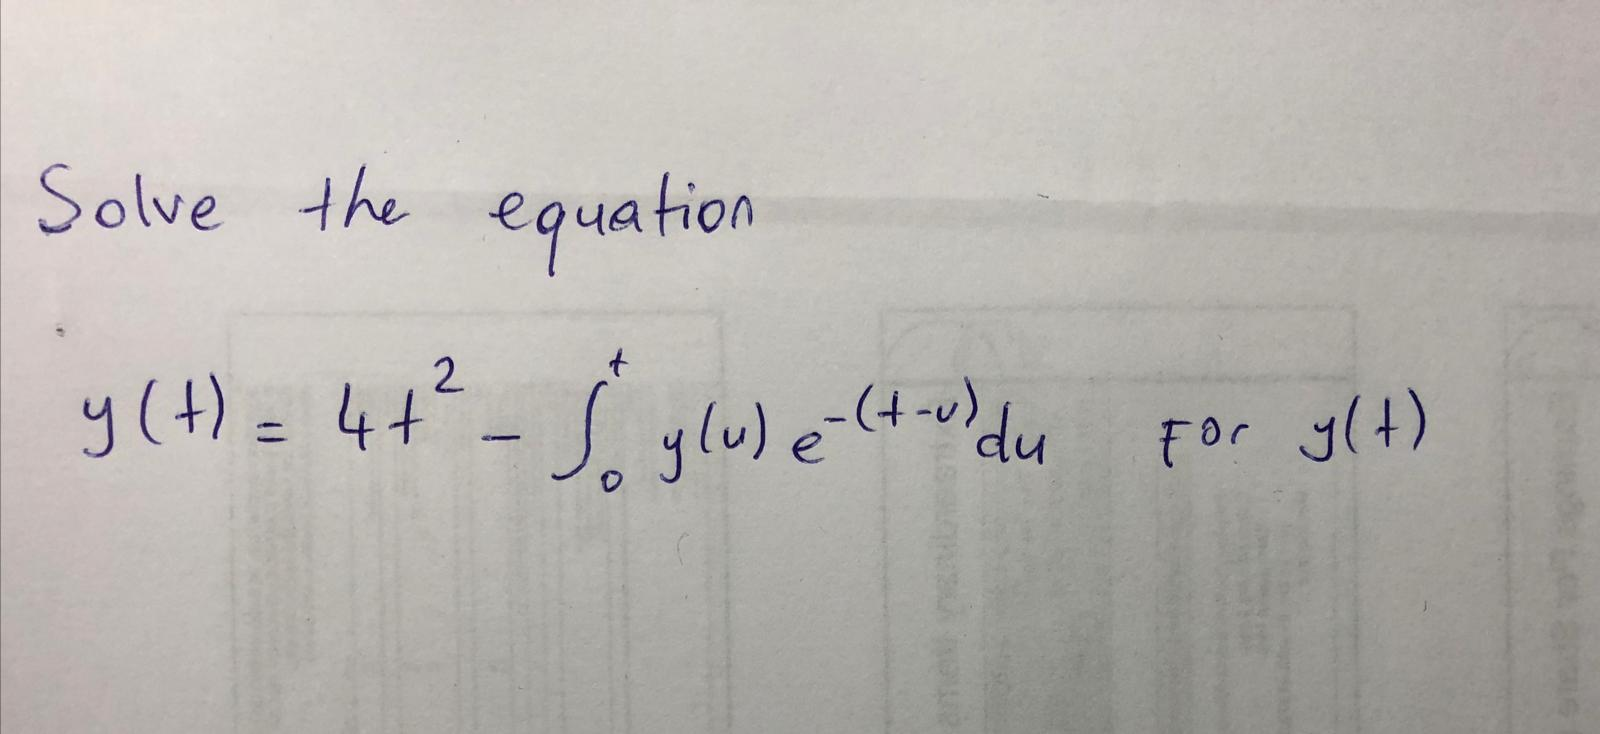 Solve the equation
y(t) = 4t² - ∫₀ᵗ y(u) e^-(t-u) du For y(t)